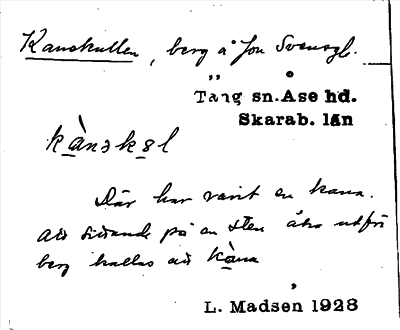 Kanskullen, berg å fru Svensgb.
Täng sn. Åse hd.
Skarab. län
kànskol
Där har varit en kana.
Att sittande på en sten åka utför
berg kallas att kàna
L. Madsen 1928